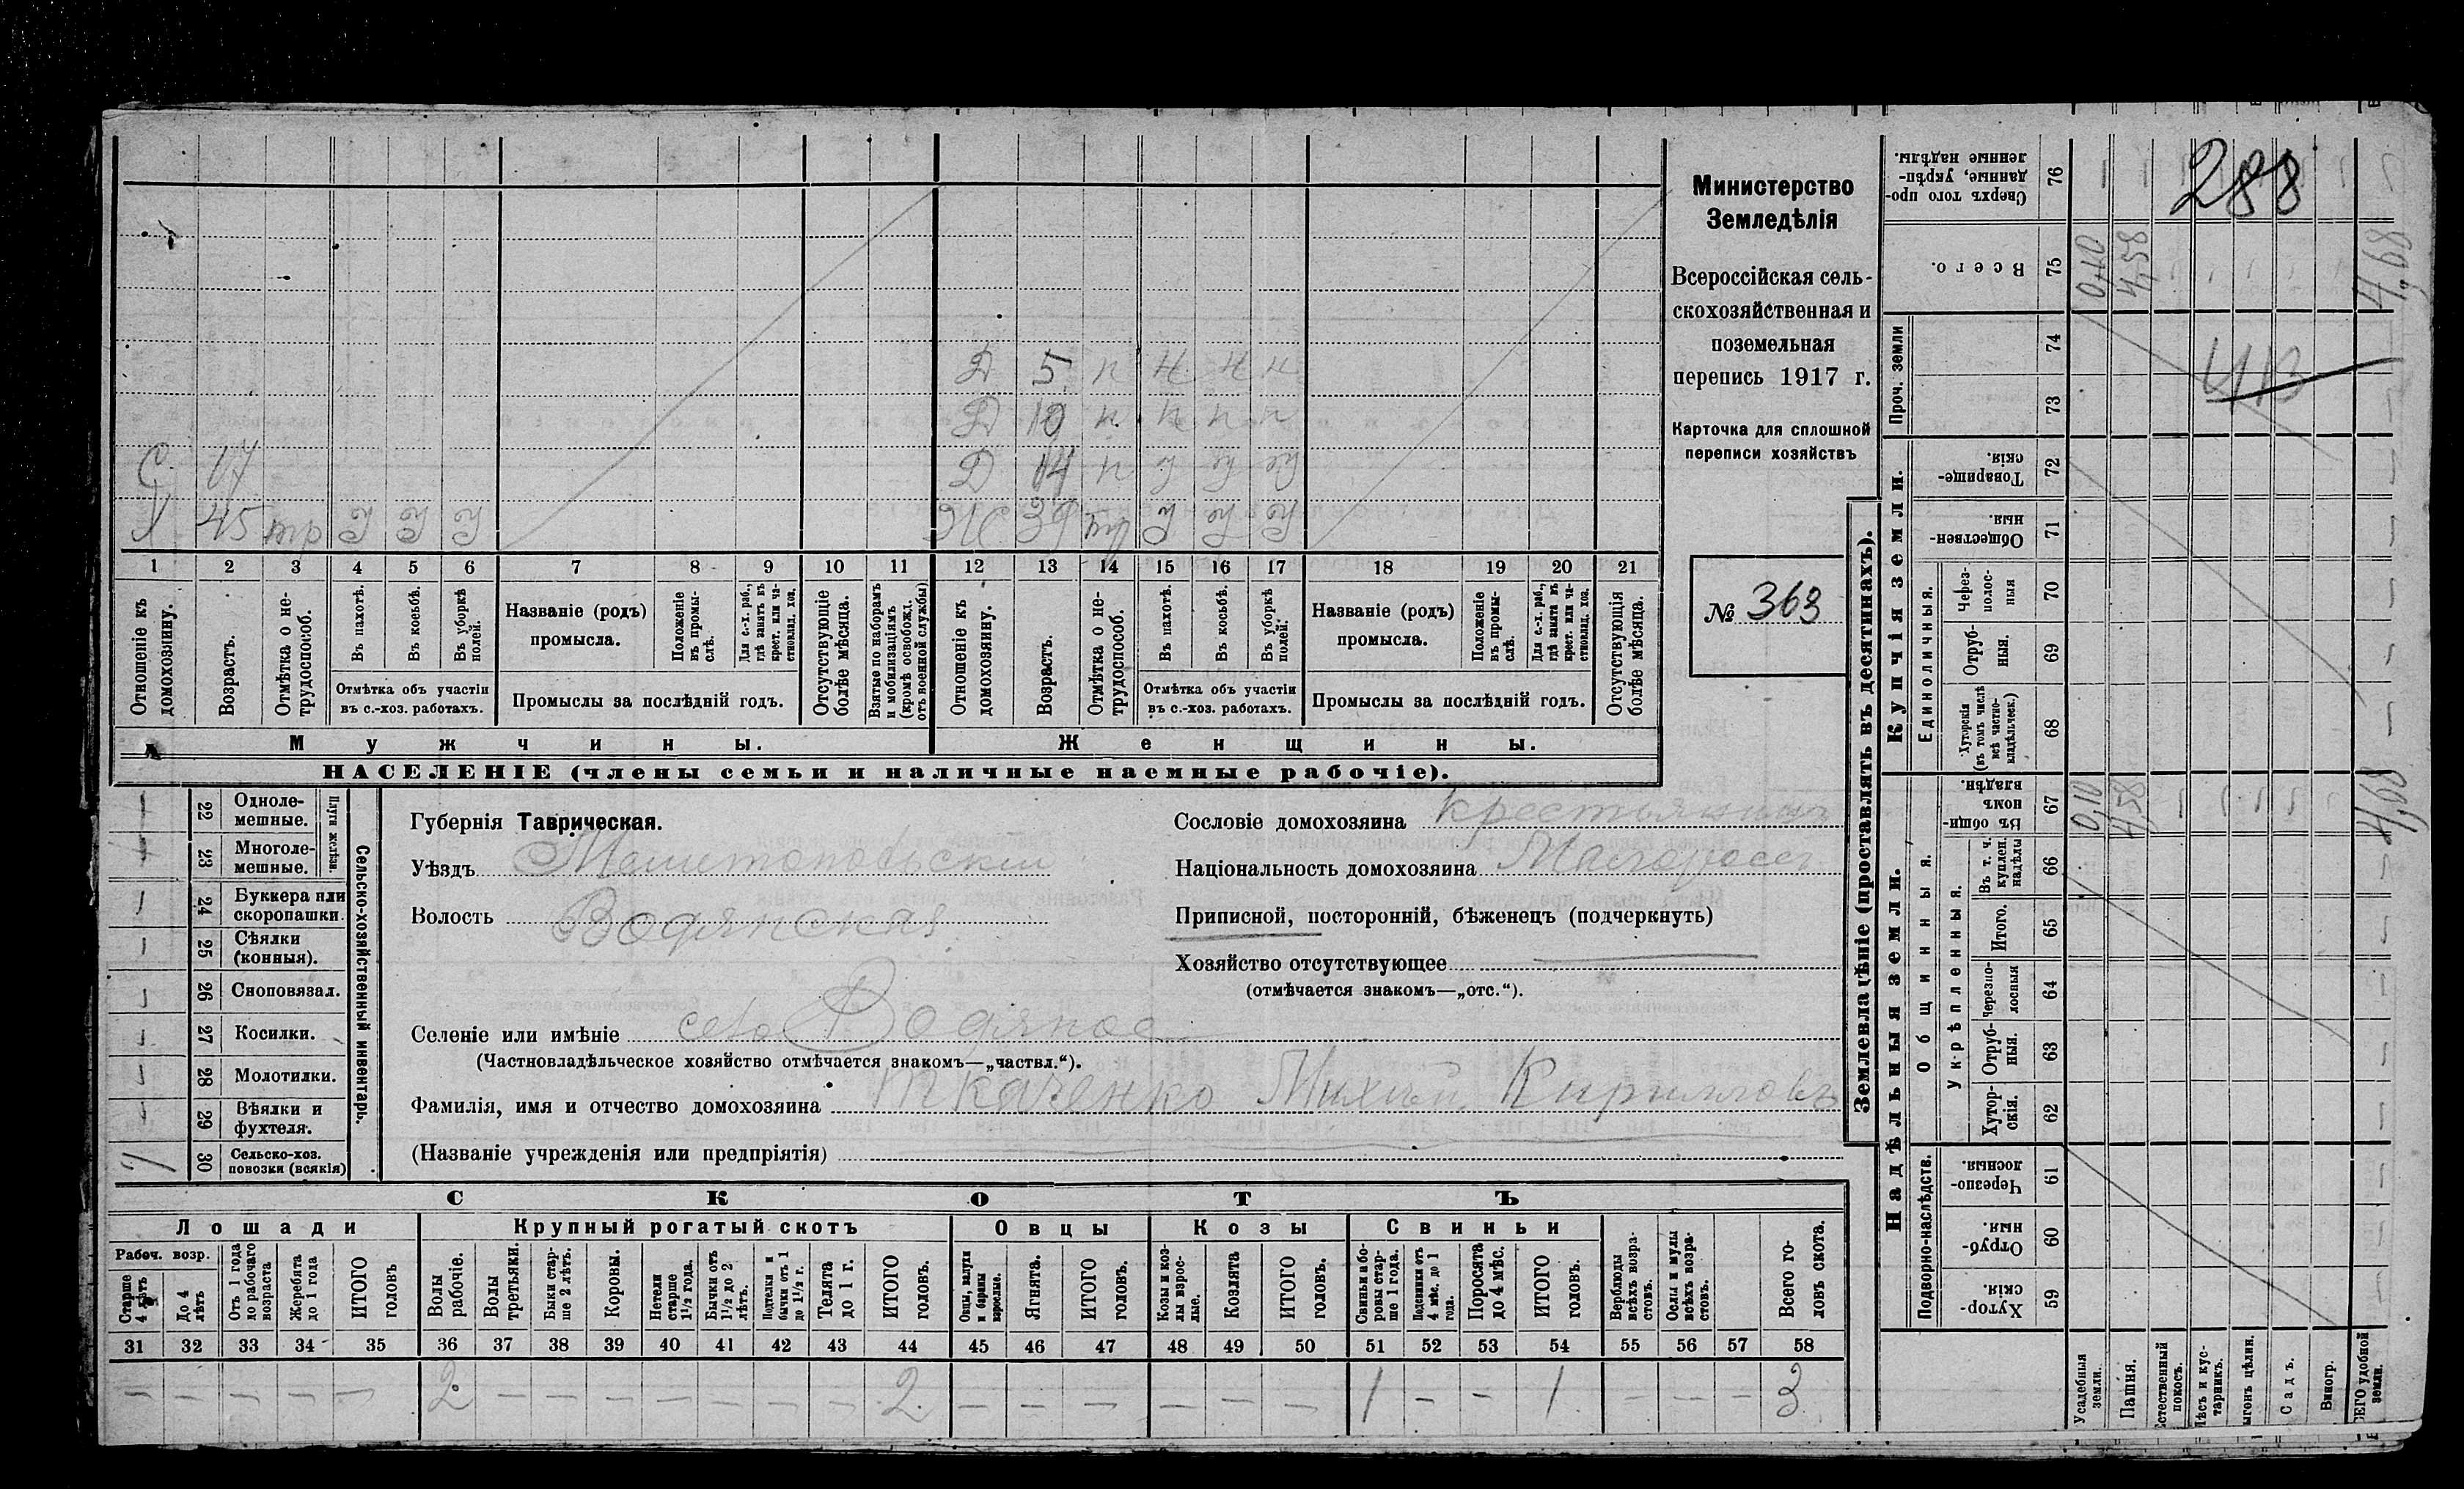 Министерство
Земледѣлія
Всероссійская сель-
скохозяйственная и
поземельная
перепись 1917 г.
Карточка для сплошной
переписи хозяйствъ
№ 363
288
413
Д 5 н н н н
Д 10 н н н н
С 17 Д 14 н
Х 45 Ж 39
1 2 3 4 5 6 7 8 9 10 11 12 13 14 15 16 17 18 19 20 21
Отношеніе къ домохозяину.
Возрастъ.
Отмѣтка о не-трудоспособ.
Въ пахотѣ.
Въ косьбѣ.
Въ уборкѣ полей.
Отмѣтка объ участіи въ с.-хоз. работахъ.
Названіе (родъ) промысла.
Положеніе въ промы-слѣ.
Для с.-х. раб., гдѣ занятъ въ крест. или ча-стновлад. хоз.
Промыслы за послѣдній годъ.
Отсутствующіе болѣе мѣсяца.
Взятые по наборамъ и мобилизаціямъ (кромѣ освобожд. отъ военной службы)
Отношеніе къ домохозяину.
Возрастъ.
Отмѣтка о не-трудоспособ.
Въ пахотѣ.
Въ косьбѣ.
Въ уборкѣ полей.
Отмѣтка объ участіи въ с.-хоз. работахъ.
Названіе (родъ) промысла.
Положеніе въ промы-слѣ.
Для с.-х. раб., гдѣ занята въ крест. или ча-стновлад. хоз.
Промыслы за послѣдній годъ.
Отсутствующія болѣе мѣсяца.
Мужчины. Женщины.
НАСЕЛЕНІЕ (члены семьи и наличные наемные рабочіе).
Сельско-хозяйственный инвентарь.
Плуги желѣзн.
22 Одноле-мешные.
23 Многоле-мешные.
24 Буккера или скоропашки.
25 Сѣялки (конныя).
26 Сноповязал.
27 Косилки.
28 Молотилки.
29 Вѣялки и фухтеля.
30 Сельско-хоз. повозки (всякія) 1
Губернія Таврическая.
Уѣздъ Мелитопольскій
Волость Водянская
Селеніе или имѣніе село Водяное
(Частновладѣльческое хозяйство отмѣчается знакомъ—„частвл.“).
Фамилія, имя и отчество домохозяина Ткаченко Кирилловъ
(Названіе учрежденія или предпріятія)
Сословіе домохозяина крестьянинъ
Національность домохозяина Малоросс
Приписной, посторонній, бѣженецъ (подчеркнуть)
Хозяйство отсутствующее
(отмѣчается знакомъ—„отс.“).
СКОТЪ
Лошади Крупный рогатый скотъ Овцы Козы Свиньи
Рабоч. возр.
Старше 4 лѣтъ
До 4 лѣтъ
Отъ 1 года до рабочаго возраста
Жеребята до 1 года
ИТОГО головъ
Волы рабочіе.
Волы третьяки.
Быки стар-ше 2 лѣтъ.
Коровы.
Нетели старше 1½ года.
Бычки отъ 1½ до 2 лѣтъ.
Подтелки и бычки отъ 1 до 1½ г.
Телята до 1 г.
ИТОГО головъ.
Овцы, валухи и бараны взрослые.
Ягнята.
ИТОГО головъ.
Козы и коз-лы взрос-лые.
Козлята
ИТОГО головъ.
Свиньи и бо-ровы стар-ше 1 года.
Подсвинки отъ 4 мѣс. до 1 года.
Поросята до 4 мѣс.
ИТОГО головъ.
Верблюды всѣхъ возра-стовъ.
Ослы и мулы всѣхъ возра-стовъ.
Всего го-ловъ скота.
31 32 33 34 35 36 37 38 39 40 41 42 43 44 45 46 47 48 49 50 51 52 53 54 55 56 57 58
— — — — — 2 — — — — — — — 2 — — — — — — 1 — — 1 — — — 3
Землевладѣніе (проставлять въ десятинахъ).
Надѣльныя земли.
Купчія земли.
Проч. земли
Подворно-наслѣдств.
Общинныя.
Укрѣпленныя.
Единоличныя.
59 Хутор-скія.
60 Отруб-ныя.
61 Черезпо-лосныя.
62 Хутор-скія.
63 Отруб-ныя.
64 Черезпо-лосныя
65 Итого.
66 Въ т. ч. куплен. надѣлы
67 Въ общин-номъ владѣн. 0,10 4,58 4,68
68 Хуторскія (въ томъ числѣ всѣ частно-владѣльческ.)
69 Отруб-ныя.
70 Через-полос-ныя
71 Обществен-ныя.
72 Товарище-скія.
73
74
75 Всего. 0,10 4,58 4,68
76 Сверхъ того про-данные, укрѣп-ленные надѣлы.
Усадебныя земли.
Пашня.
Естественный покосъ.
Лѣсъ и кус-тарникъ.
Выгонъ цѣлин.
Садъ.
Виногр.
ВСЕГО удобной земли.